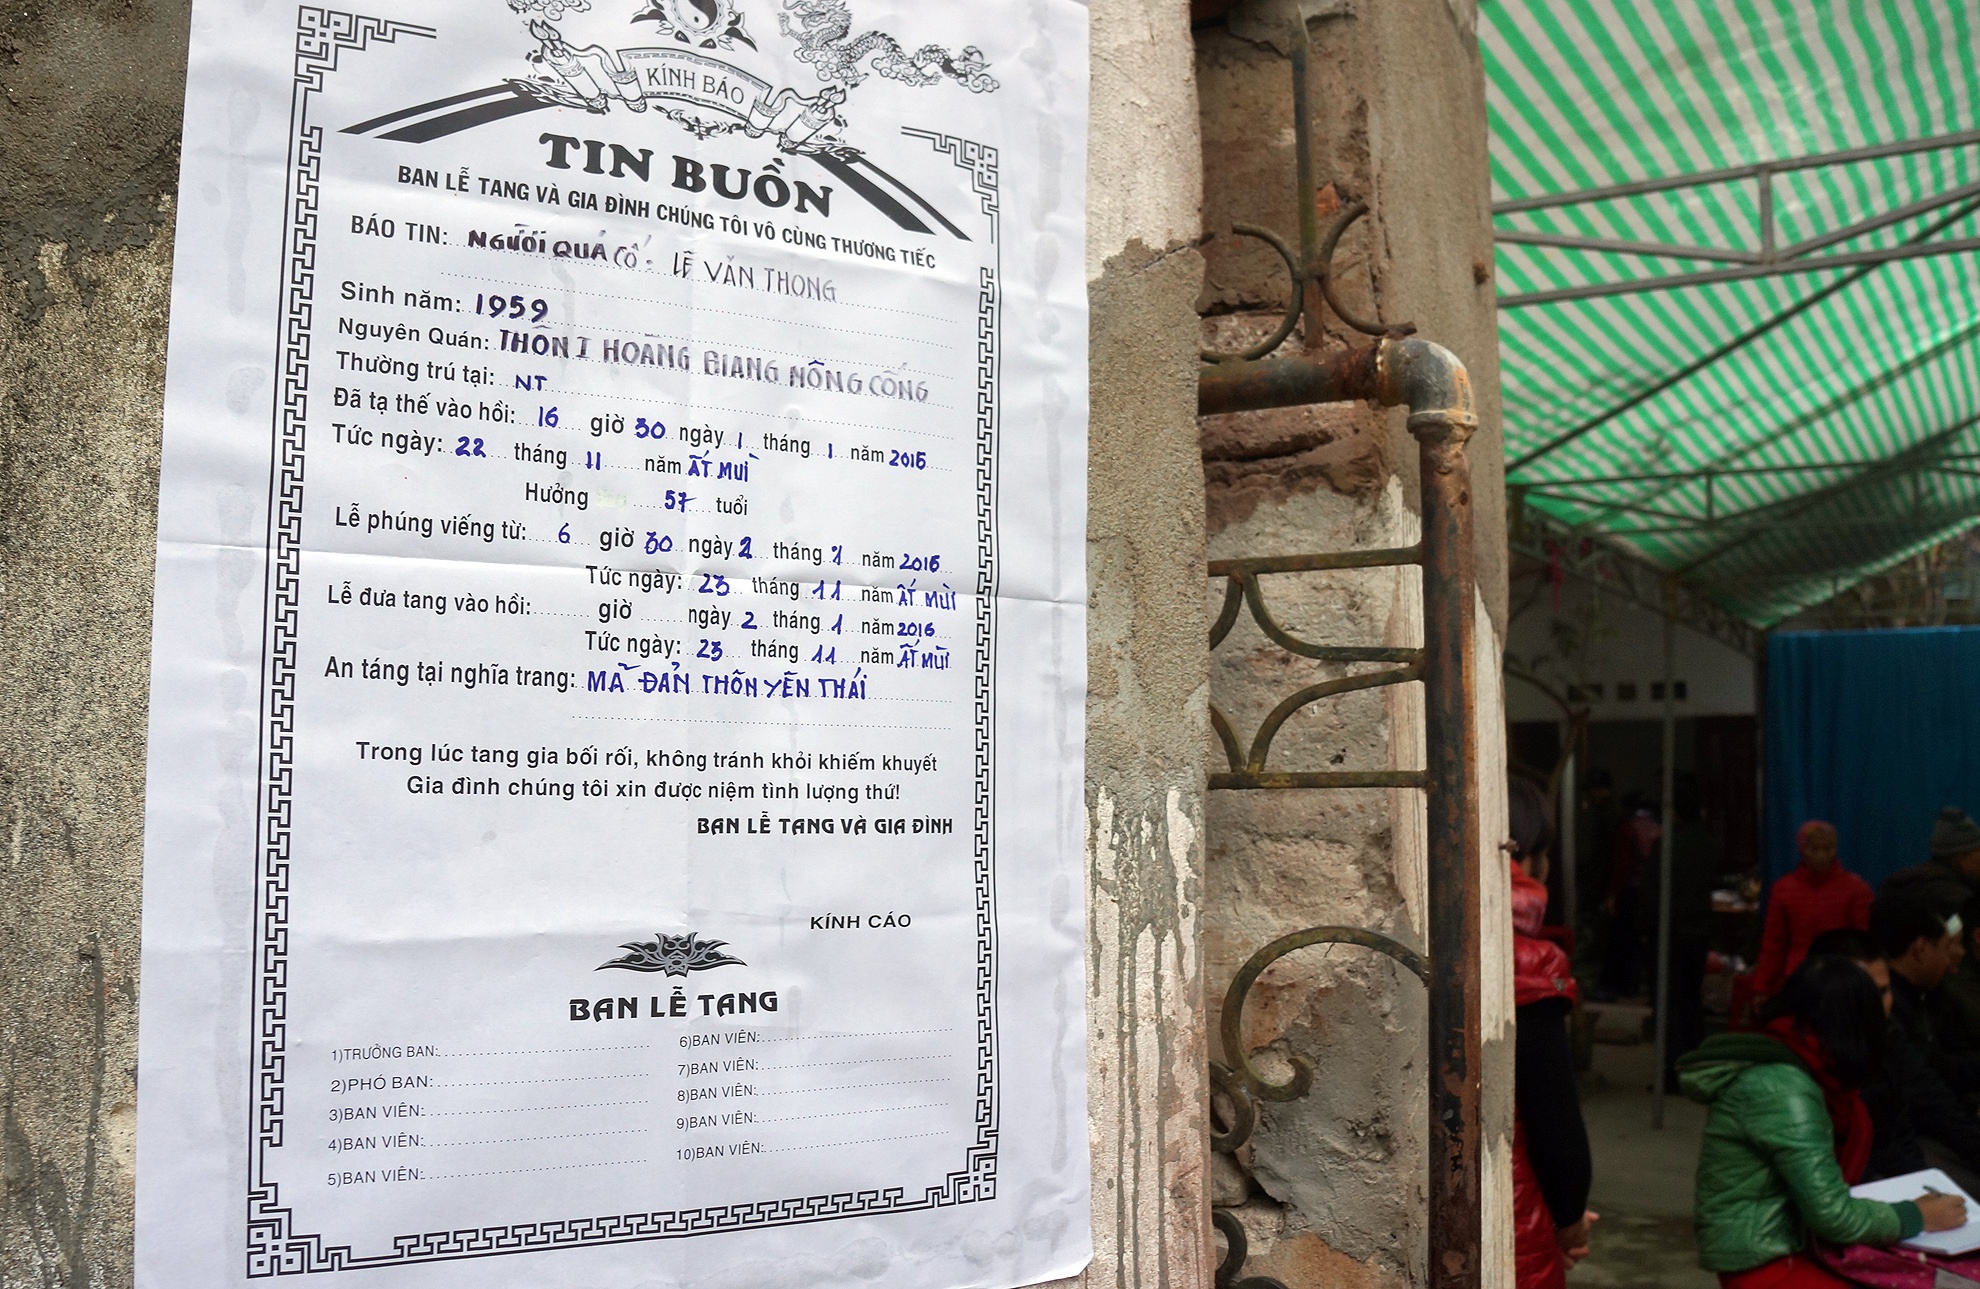 KÍNH BÁO
TIN BUỒN
BAN LỄ TANG VÀ GIA ĐÌNH CHÚNG TÔI VÔ CÙNG THƯƠNG TIẾC
BÁO TIN: NGƯỜI QUÁ CỐ: LÊ VĂN THONG
Sinh năm: 1959
Nguyên Quán: THÔN I HOÀNG GIANG NÔNG CỐNG
Thường trú tại: NT
Đã tạ thế vào hồi: 16 giờ 30 ngày 1 tháng 1 năm 2016
Tức ngày: 22 tháng 11 năm ẤT MUÌ
Hưởng 57 tuổi
Lễ phúng viếng từ: 6 giờ 30 ngày 2 tháng 1 năm 2016
Tức ngày: 23 tháng 11 năm ẤT MÙI
Lễ đưa tang vào hồi: giờ ngày 2 tháng 1 năm 2016
Tức ngày: 23 tháng 11 năm ẤT MÙI
An táng tại nghĩa trang: MÃ ĐẢN THÔN YÊN THÁI
Trong lúc tang gia bối rối, không tránh khỏi khiếm khuyết
Gia đình chúng tôi xin được niệm tình lượng thứ!
BAN LỄ TANG VÀ GIA ĐÌNH
KÍNH CÁO
BAN LỄ TANG
1)TRƯỞNG BAN:
2)PHÓ BAN:
3)BAN VIÊN:
4)BAN VIÊN:
5)BAN VIÊN:
6)BAN VIÊN:
7)BAN VIÊN:
8)BAN VIÊN:
9)BAN VIÊN:
10)BAN VIÊN: